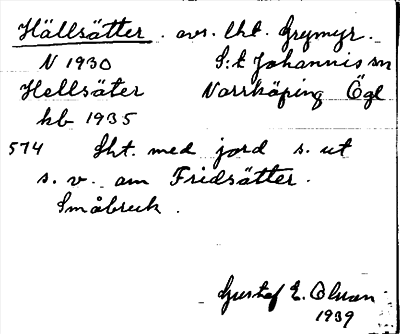 Hällsätter. avs. lht. Grymyr.
N 1930 S:t Johannis sn
Hellsäter Norrköping Ögl
kb 1935
574 Lht. med jord s. ut
s. v. om Fridsätter.
Småbruk.
Gustaf E. Olson
1939